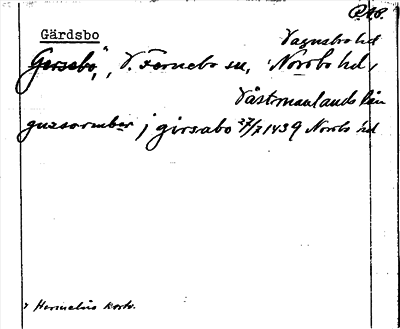 P.18.
Gärdsbo
Vagnsbo hd
Gersebo, V. Fernebo sn, Norrbo hd,
Västmanlands län
gudsormber j girsabo 27/7 1439 Norrbo hd
Hermelins kart.